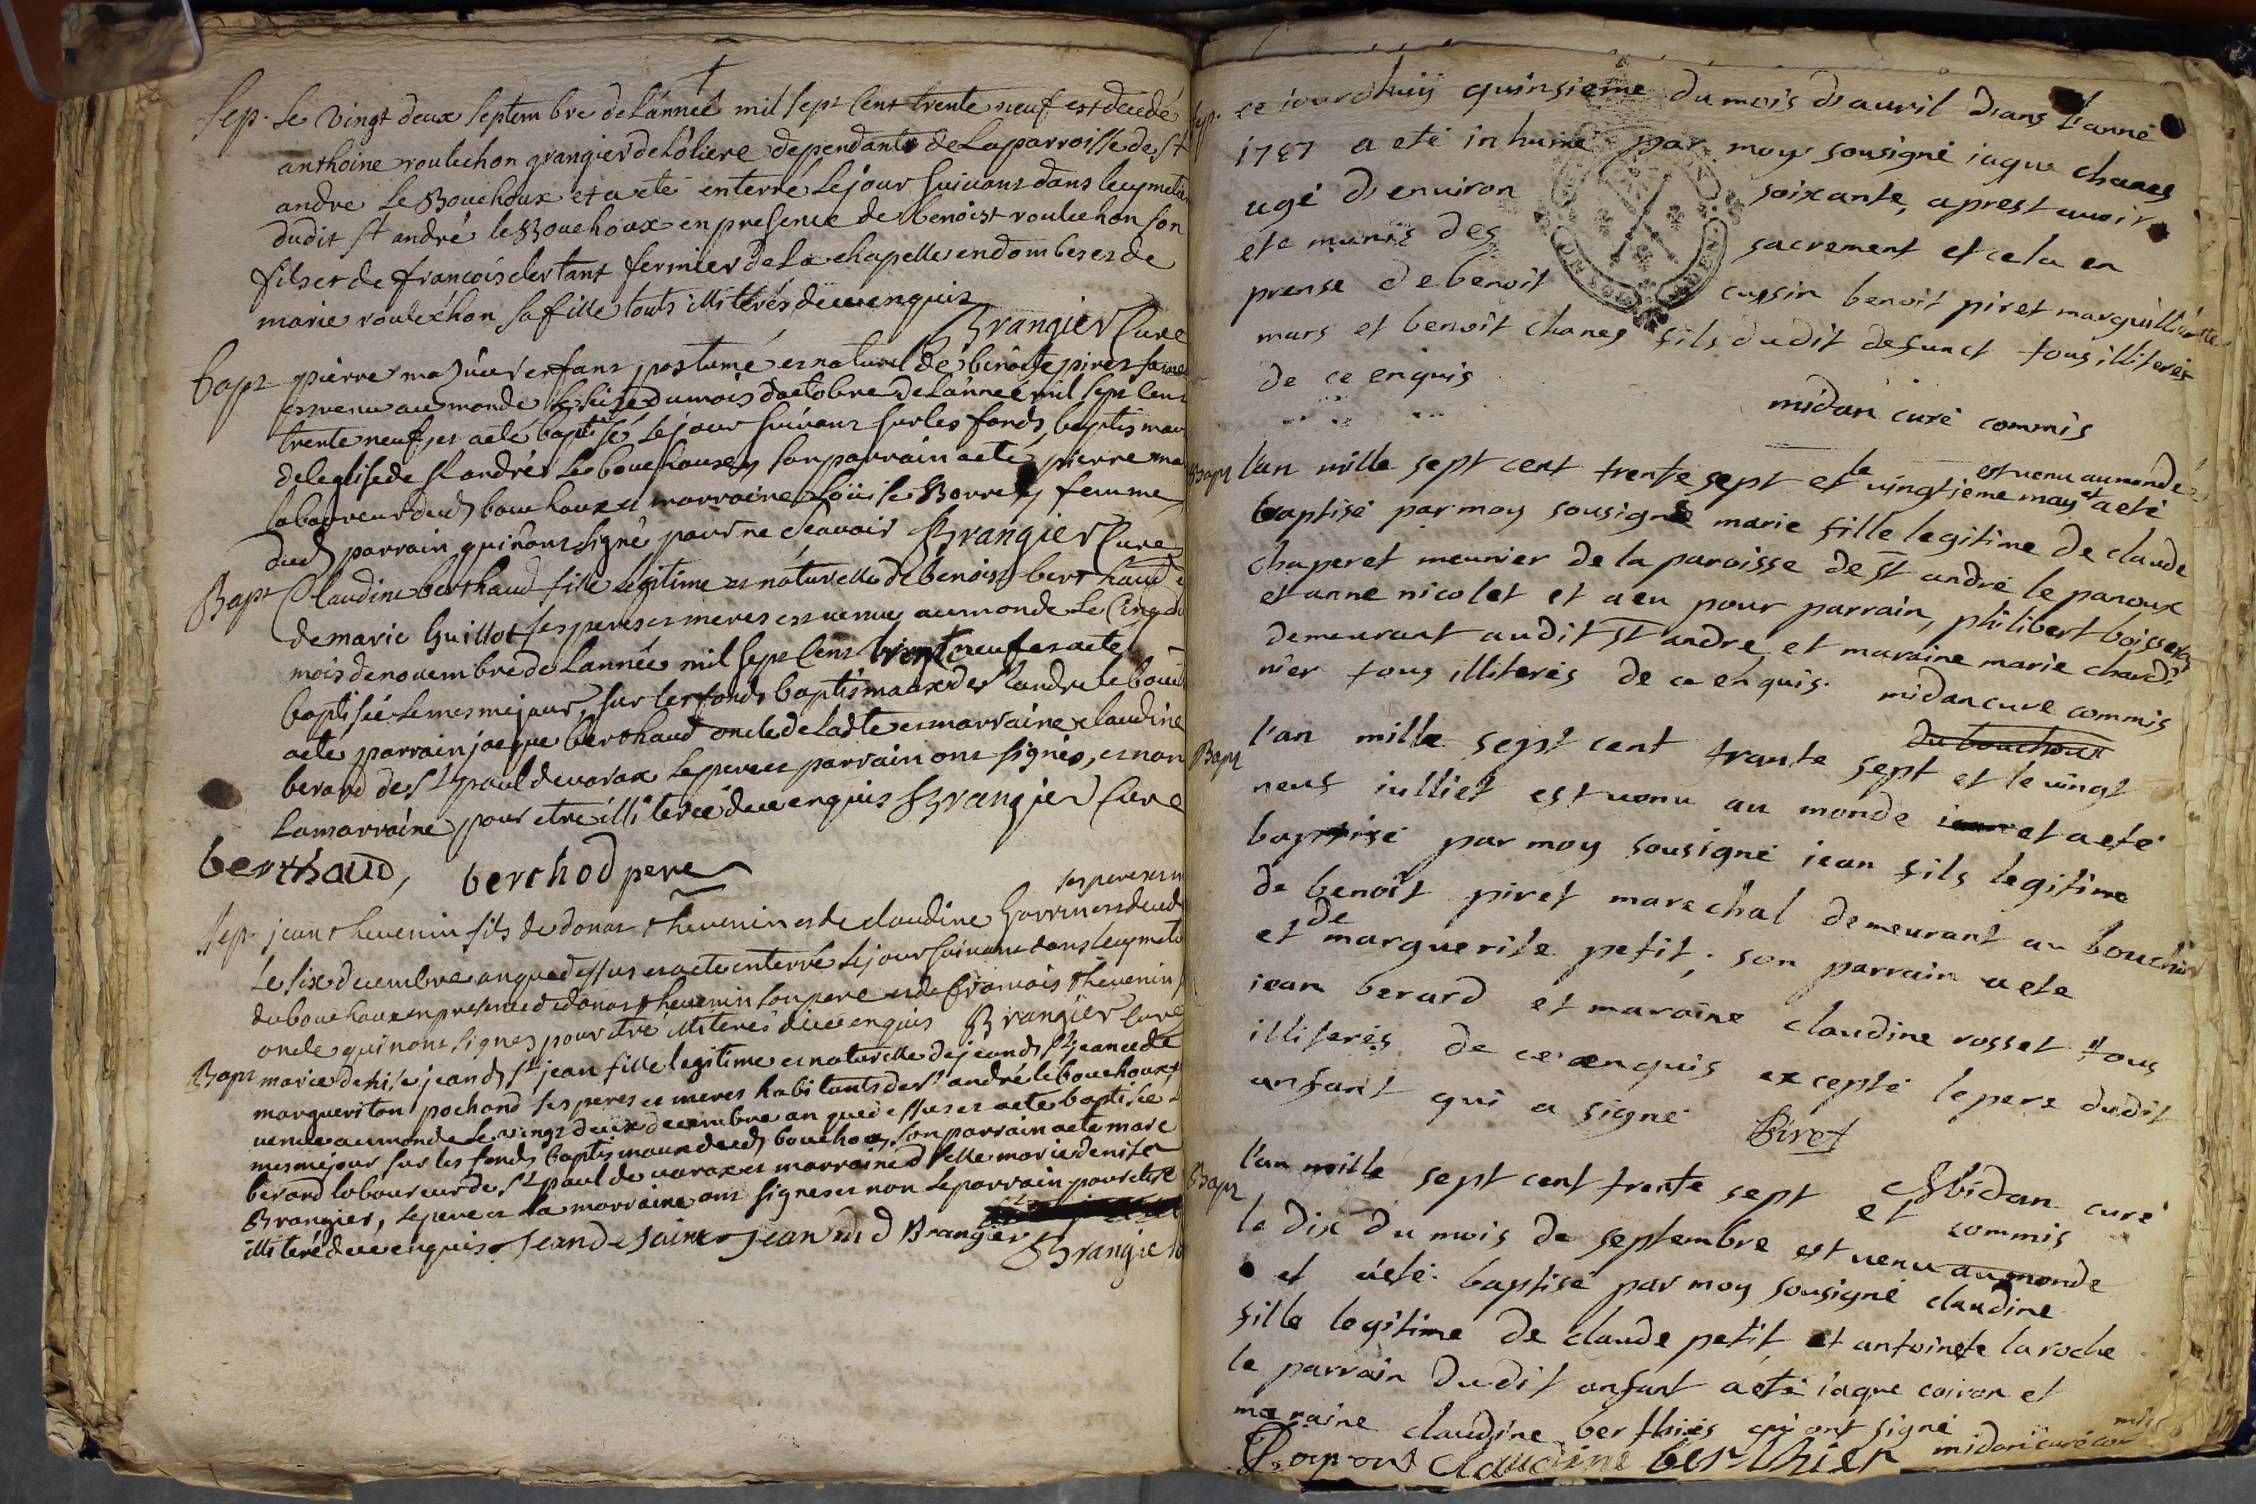 Sep. Le vingt deux septembre de Lannee mil sept Cent trente neuf est decedé
anthoine rouluchon grangier de Loliere dependante de La parroisse de st
andre Le Bouchoux et a eté enterré Le jour suivant dans Le cymetie
dudit st andré le Bouchoux en presence de benoist rouluchon son
fils et de francois clertant fermier de La chapelle en dombes et de
marie rouluchon sa fille touts illiterés de ce enquis
Brangier Curé
bapt pierre enfant postume et naturel de benoite piret femme
est venu au monde le du mois doctobre de Lanneé mil sept Cent
trente neuf, et a eté baptisé Le jour suivant sur les fonds baptismau
de leglise de st andré Le bouchoux, son parrain a eté pierre
laboureur dud bouchoux et marraine Loüise Borrey femme
dud parrain qui n'ont signé pour ne sçavoir Brangier Curé
Bapt Claudine berthaud fille legitime et naturelle de benoist berthaud e
de marie Guillot ses peres et meres est venue au monde Le Cinq du
mois de novembre de Lanneé mil sept Cent trente neuf et a eté
baptisée Le mesme jour, sur les fonds baptismaux de st andre le bou
a eté parrain jacque berthaud oncle de Ladte et marraine claudine
berard de st paul de varax Le pere et parrain ont signés, et non
La marraine pour etre illiterée de ce enquis Brangier Curé
berthaud, berchod pere
ses pere et m
Sep. jean thevenin fils de donat thevenin et de claudine est decedé
Le six decembre an que dessus et a eté enterré Le jour suivant dans Le cymetie
du bouchoux en presence de donat thevenin son pere et de francois thevenin
oncle qui n'ont signes pour etre illiterés de ce enquis Brangier Curé
Bapt marie denise jean de st jean fille legitime et naturelle de jean de st jean et de
margueriton pochand ses peres et meres habitants de st andré le bouchoux,
venue au monde Le vingt deux decembre an que dessus et a eté baptisée
mesme jour sur les fonds baptismaux dud bouchoux, son parrain a eté marc
berard laboureur de st paul de varax et marraine delle marie denise
Brangier, Le pere et La marraine ont signes et non Le parrain pour etre
illiteré de ce enquis Jean de saint Jean m d Brangier
Brangier
Sep. ce iourdhuij quinsieme du mois d'auril dans l'anné
1737 a eté inhumé par moy sousigné iaque chanes
agé d'enuiron soixante, aprest auoir
ete munis des sacrement et cela en
prense de benoit cussin benoit piret marguillier
mars et benoit chanes fils dudit defunct tous illiterés
de ce enquis
midan curé commis
Bapt l'an mille sept cent trente sept et le vingtieme may est venu au monde
et a eté
baptisé par moy sousigné marie fille legitime de claude
chaperet meunier de la paroisse de st andré le panoux
et anne nicolet et a eu pour parrain, philibert boisser
demeurant audit st andre et maraine marie chardi
nier tous illiterés de ce enquis. midan cure commis
du bouchoux
Bapt l'an mille sept cent trante sept et le vingt
neuf iulliet est venu au monde et a eté
baptisé par moy sousigné iean fils legitime
de benoît piret marechal demeurant au bouchou
et de marguerite petit; son parrain a ete
iean berard et maraine claudine rosset tous
illiterés de ce enquis excepté le pere dudit
anfant qui a signé Piret
Midan curé
commis
Bapt l'an mille sept cent trente sept et
le dix du mois de septembre est venu au monde
et a eté baptisé par moy sousigné claudine
fille legitime de claude petit et antoinete laroche
le parrain dudit anfant a eté iaque coiron et
maraine claudine berthiés qui ont signé
Claudine berthier midan curé com